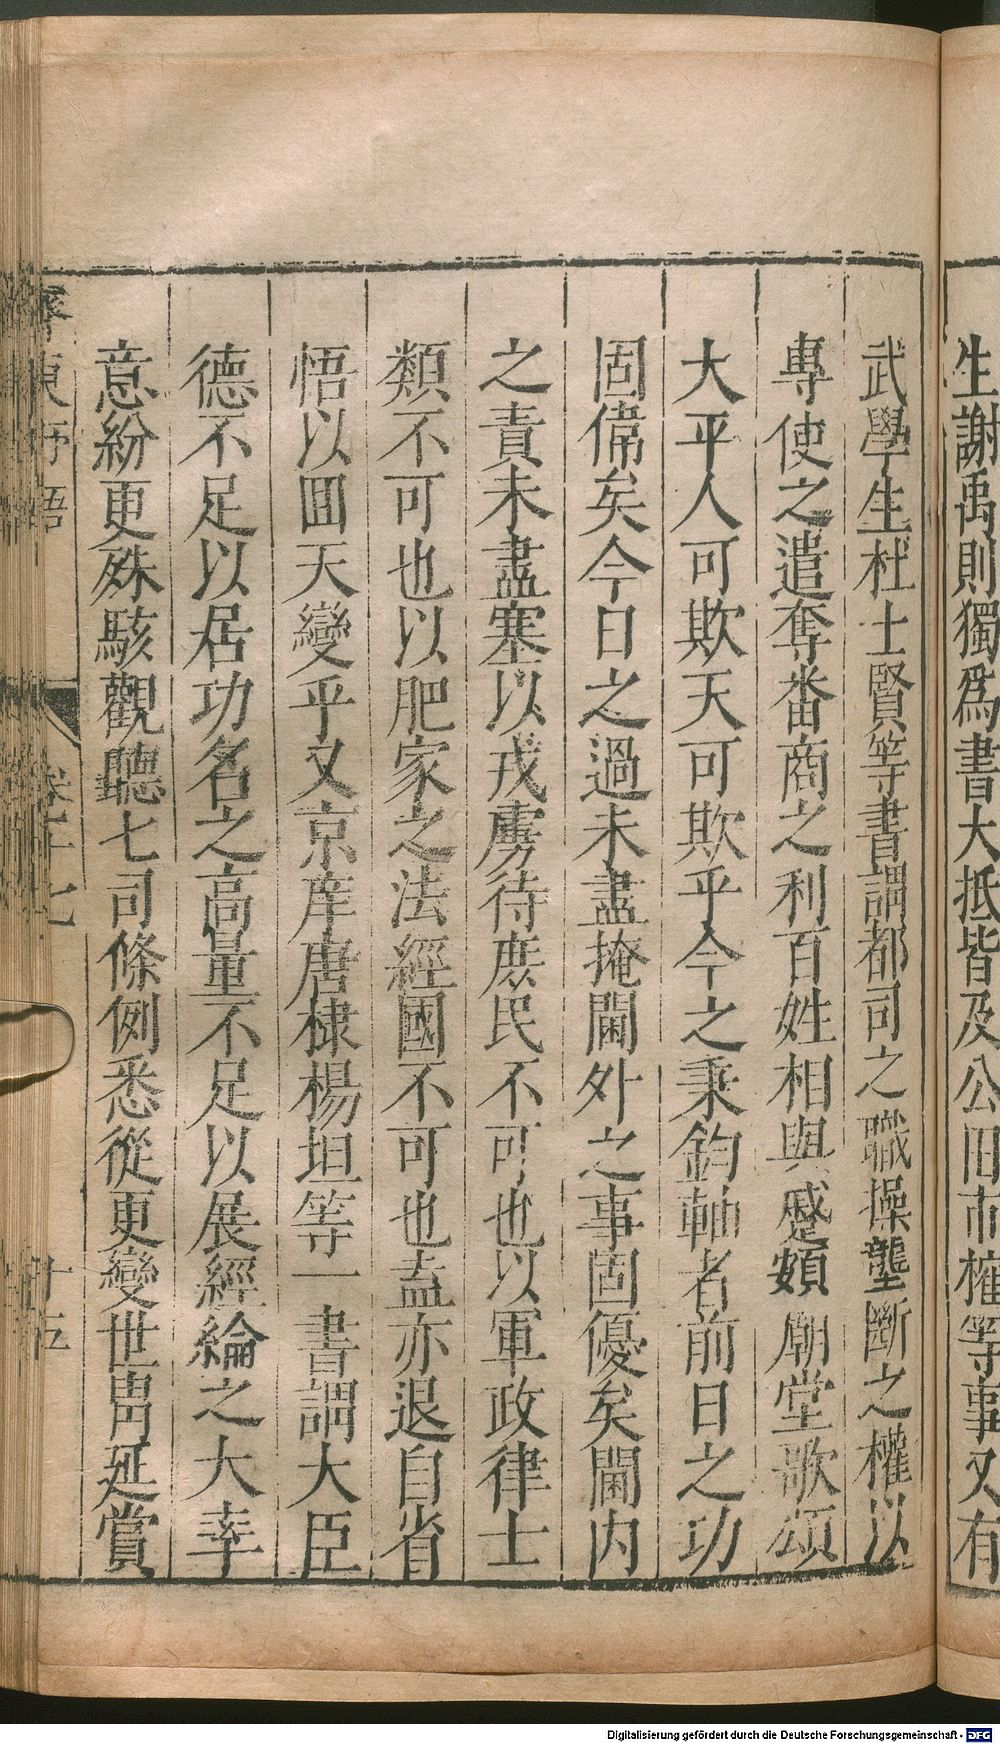 生謝禹則獨爲書大抵皆及公田市權等事又有
武學生杜士賢等書謂都司之職操壟斷之權以
專使之遣奪番商之利百姓相與蹙頞廟堂歌頌
大平人可欺天可欺乎今之秉鈞軸者前日之功
固偉矣今日之過未盡掩閫外之事固優矣閫内
之責未盡塞以戎虜待庶民不可也以軍政律士
類不可也以肥家之法經國不可也盍亦退自省
悟以回天變乎又京庠唐棣楊坦等一書謂大臣
德不足以居功名之高量不足以展經綸之大率
意紛更殊駭觀聽七司條例悉從更變世冑延賞
齊東野語
卷十七
十五
Digitalisierung gefördert durch die Deutsche Forschungsgemeinschaft - DFG